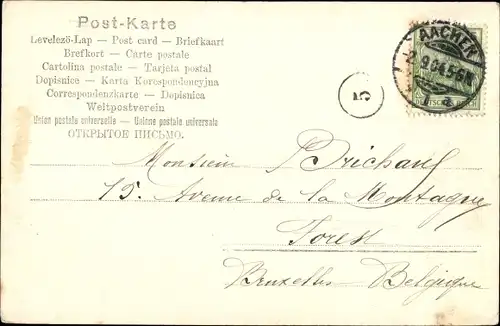 Post-Karte
Levelező-Lap — Post card — Briefkaart
Brefkort — Carte postale
Cartolina postale — Tarjeta postal
Dopisnice — Karta Korespondencyjna
Correspondenzkarte — Dopisnica
Weltpostverein
Union postale universelle — Unione postale universale
ОТКРЫТОЕ ПИСЬМО.
AACHEN
9.04.5-6N.
DEUTSCHES REICH
5
Monsieur Brichaut
15. Avenue de la Montagne
Forest
Bruxelles - Belgique